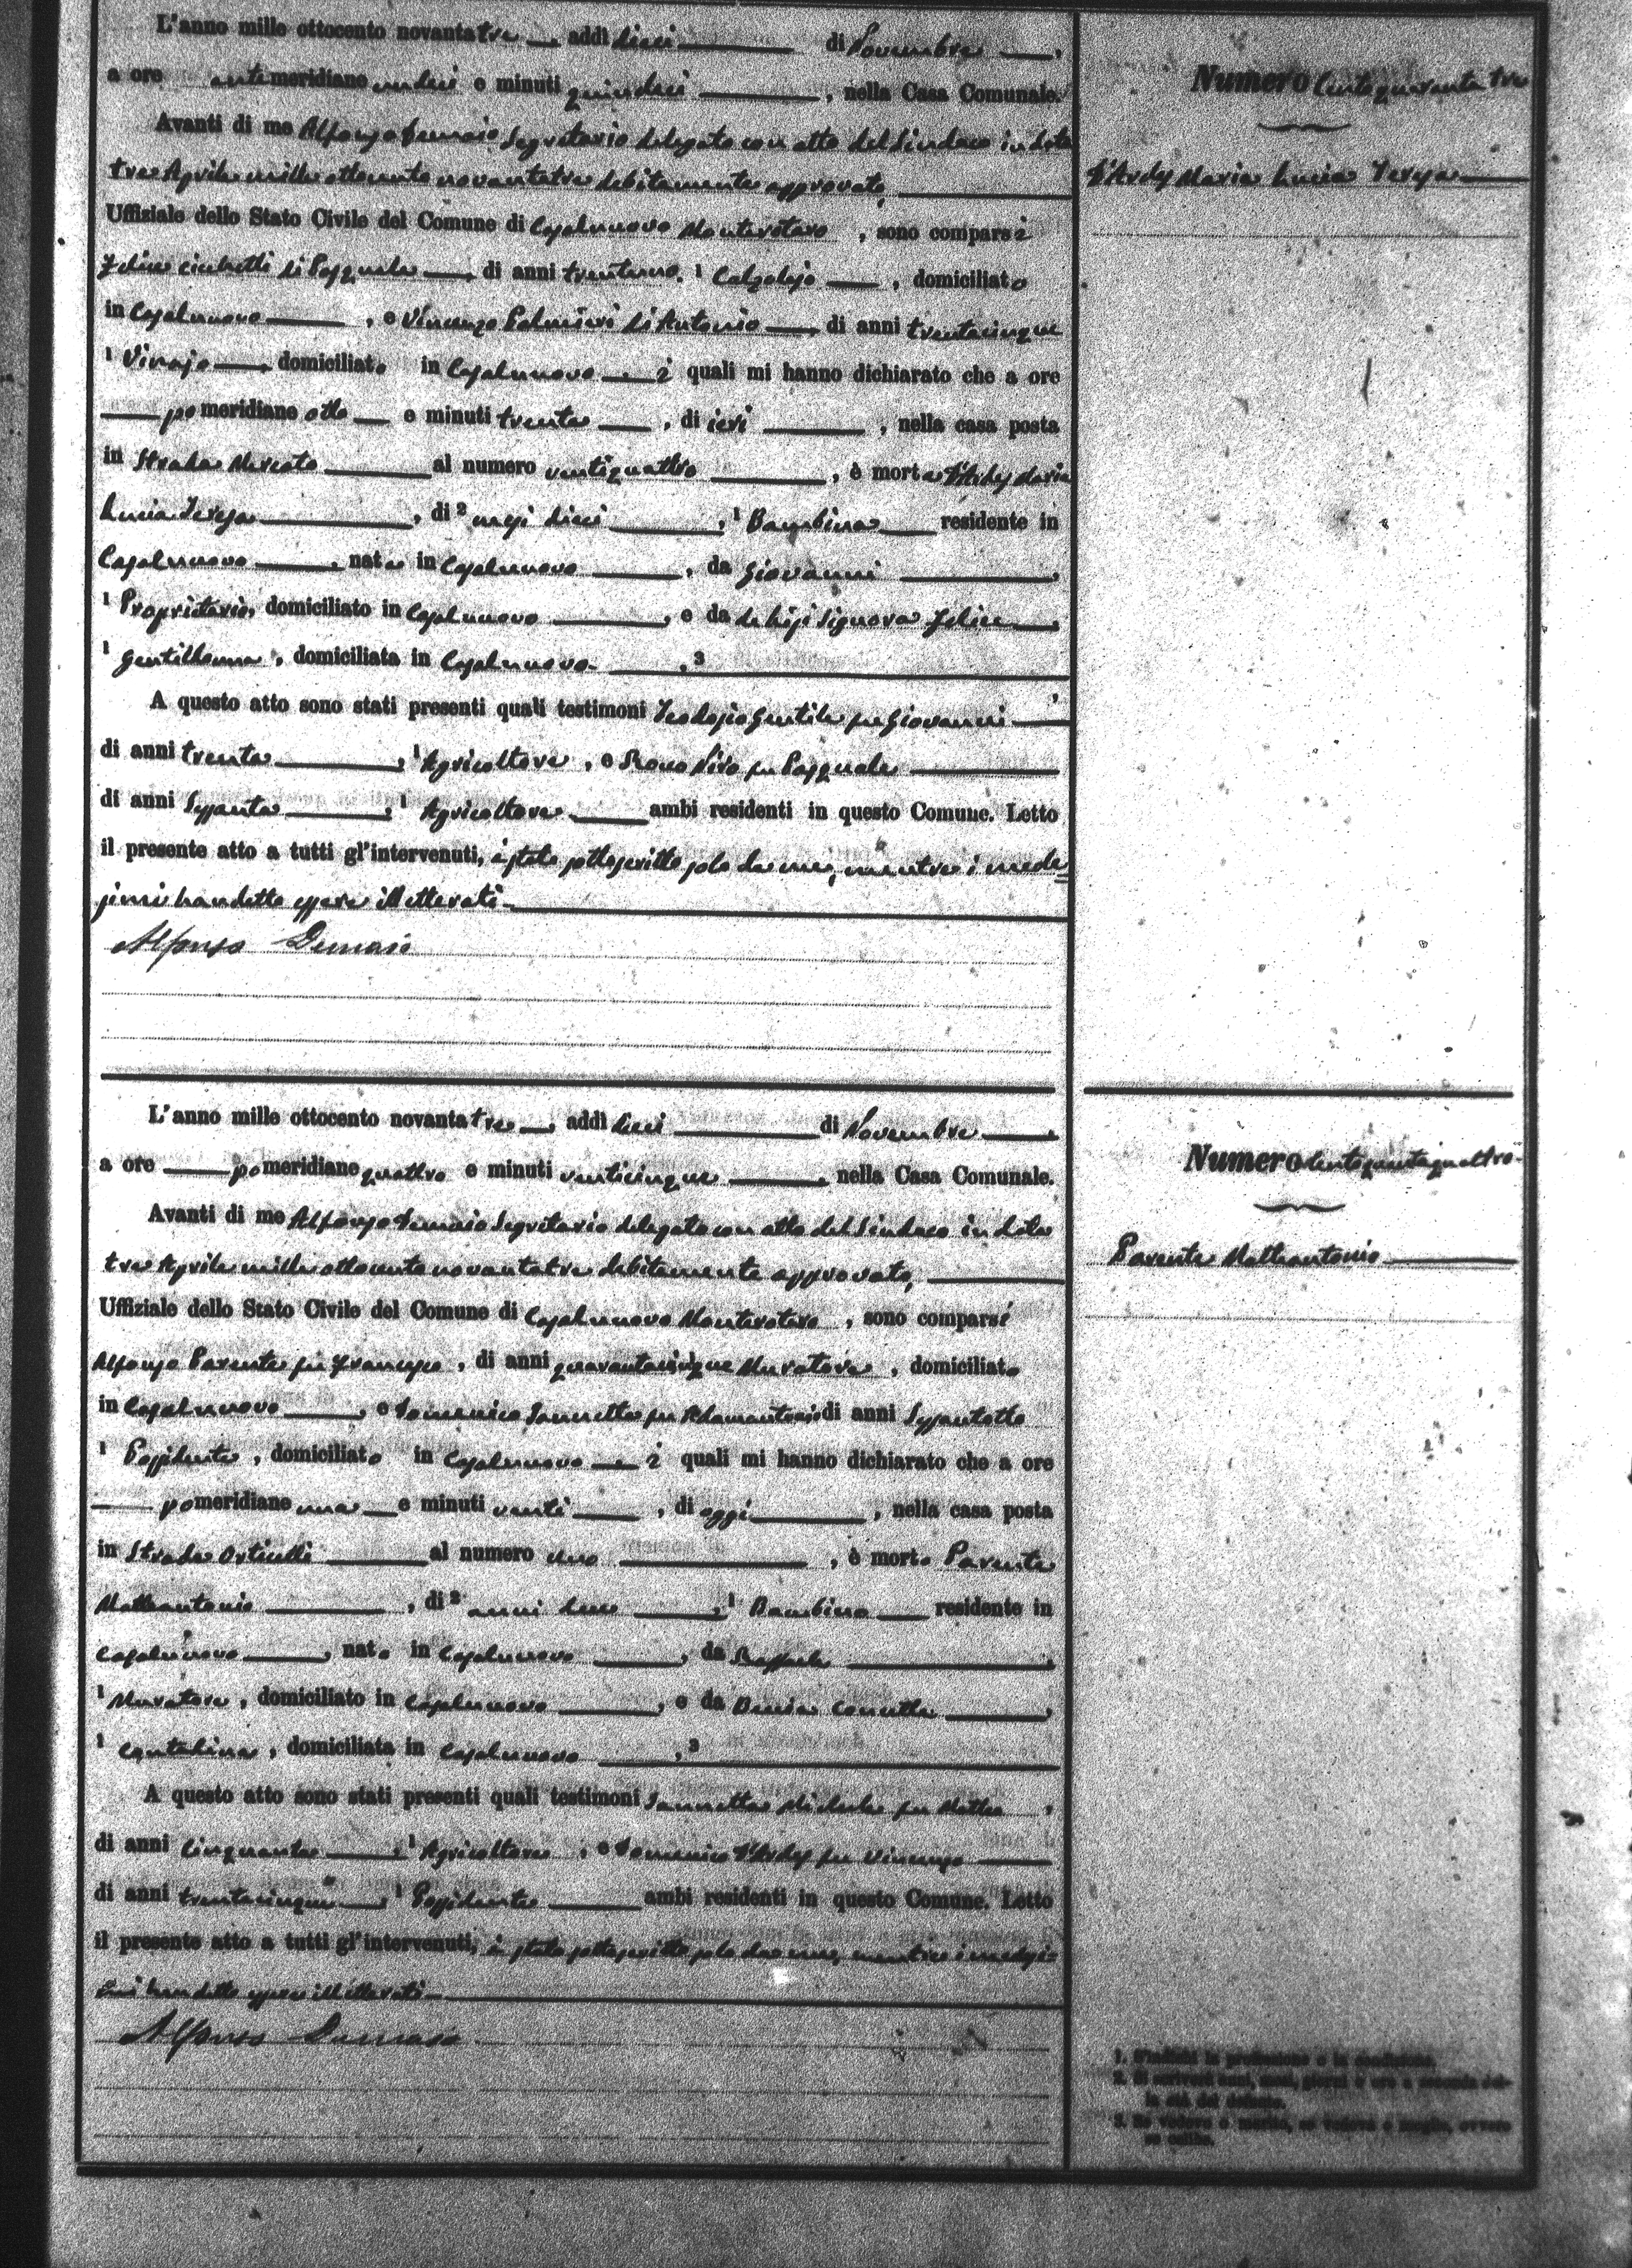 L'anno mille ottocento novantatre addì dieci di Novembre,
a ore antimeridiane undici e minuti quindici, nella Casa Comunale.
Avanti di me Alfonso Demaio Segretario delegato con atto del Sindaco in data
tre Aprile mille ottocento novantatre debitamente approvato,
Uffiziale dello Stato Civile del Comune di Casalnuovo Monterotaro, sono comparsi
Felice Cicchetti di Pasquale di anni trentuno, 1 Calzolajo, domiciliato
in Casalnuovo, e Vincenzo Palmieri di Antonio di anni trentacinque
1 domiciliato in Casalnuovo i quali mi hanno dichiarato che a ore
pomeridiane otto e minuti trenta, di ieri, nella casa posta
in Strada Mercato al numero ventiquattro, è morta D'Ardes Maria
Lucia Teresa, di 2 mesi dieci, 1 Bambina residente in
Casalnuovo, nata in Casalnuovo, da Giovanni,
1 Proprietario, domiciliato in Casalnuovo, e da Signora Felice,
1 Gentildonna, domiciliata in Casalnuovo, 3
A questo atto sono stati presenti quali testimoni Teodosio Gentile fu Giovanni,
di anni trenta, 1 Agricoltore, e fu Pasquale
di anni Sessanta, 1 Agricoltore ambi residenti in questo Comune. Letto
il presente atto a tutti gl'intervenuti, è stato sottoscritto solo da me, mentre i mede=
simi han detto essere illetterati
Alfonso Demaio
Numero Centoquarantatre
D'Ardes Maria Lucia Teresa
L'anno mille ottocento novantatre addì dieci di Novembre,
a ore pomeridiane quattro e minuti venticinque, nella Casa Comunale.
Avanti di me Alfonso Demaio Segretario delegato con atto del Sindaco in data
tre Aprile mille ottocento novantatre debitamente approvato,
Uffiziale dello Stato Civile del Comune di Casalnuovo Monterotaro, sono comparsi
Alfonso Parente fu Francesco, di anni quarantacinque Muratore, domiciliato
in Casalnuovo, e Domenico Iannetta fu di anni Sessantotto
1 Possidente, domiciliato in Casalnuovo i quali mi hanno dichiarato che a ore
pomeridiane una e minuti venti, di oggi, nella casa posta
in Strada Orticelli al numero uno, è morto Parente
Matteantonio, di 2 anni due, 1 Bambino residente in
Casalnuovo, nato in Casalnuovo, da Raffaele,
1 Muratore, domiciliato in Casalnuovo, e da,
1 Contadina, domiciliata in Casalnuovo, 3
A questo atto sono stati presenti quali testimoni Iannetta Michele fu Matteo,
di anni Cinquanta, 1 Agricoltore, e Domenico D'Ardes fu Vincenzo
di anni trentacinque, 1 Possidente ambi residenti in questo Comune. Letto
il presente atto a tutti gl'intervenuti, è stato sottoscritto solo da me, mentre i medesi=
mi han detto essere illetterati
Alfonso Demaio
Numero
Parente Matteantonio
1. S'indichi la professione o la condizione.
2. Si scrivano anni, mesi, giorni o ore a seconda del-
la età del defunto.
3. Se vedovo o marito, se vedova o moglie, ovvero
se celibe.